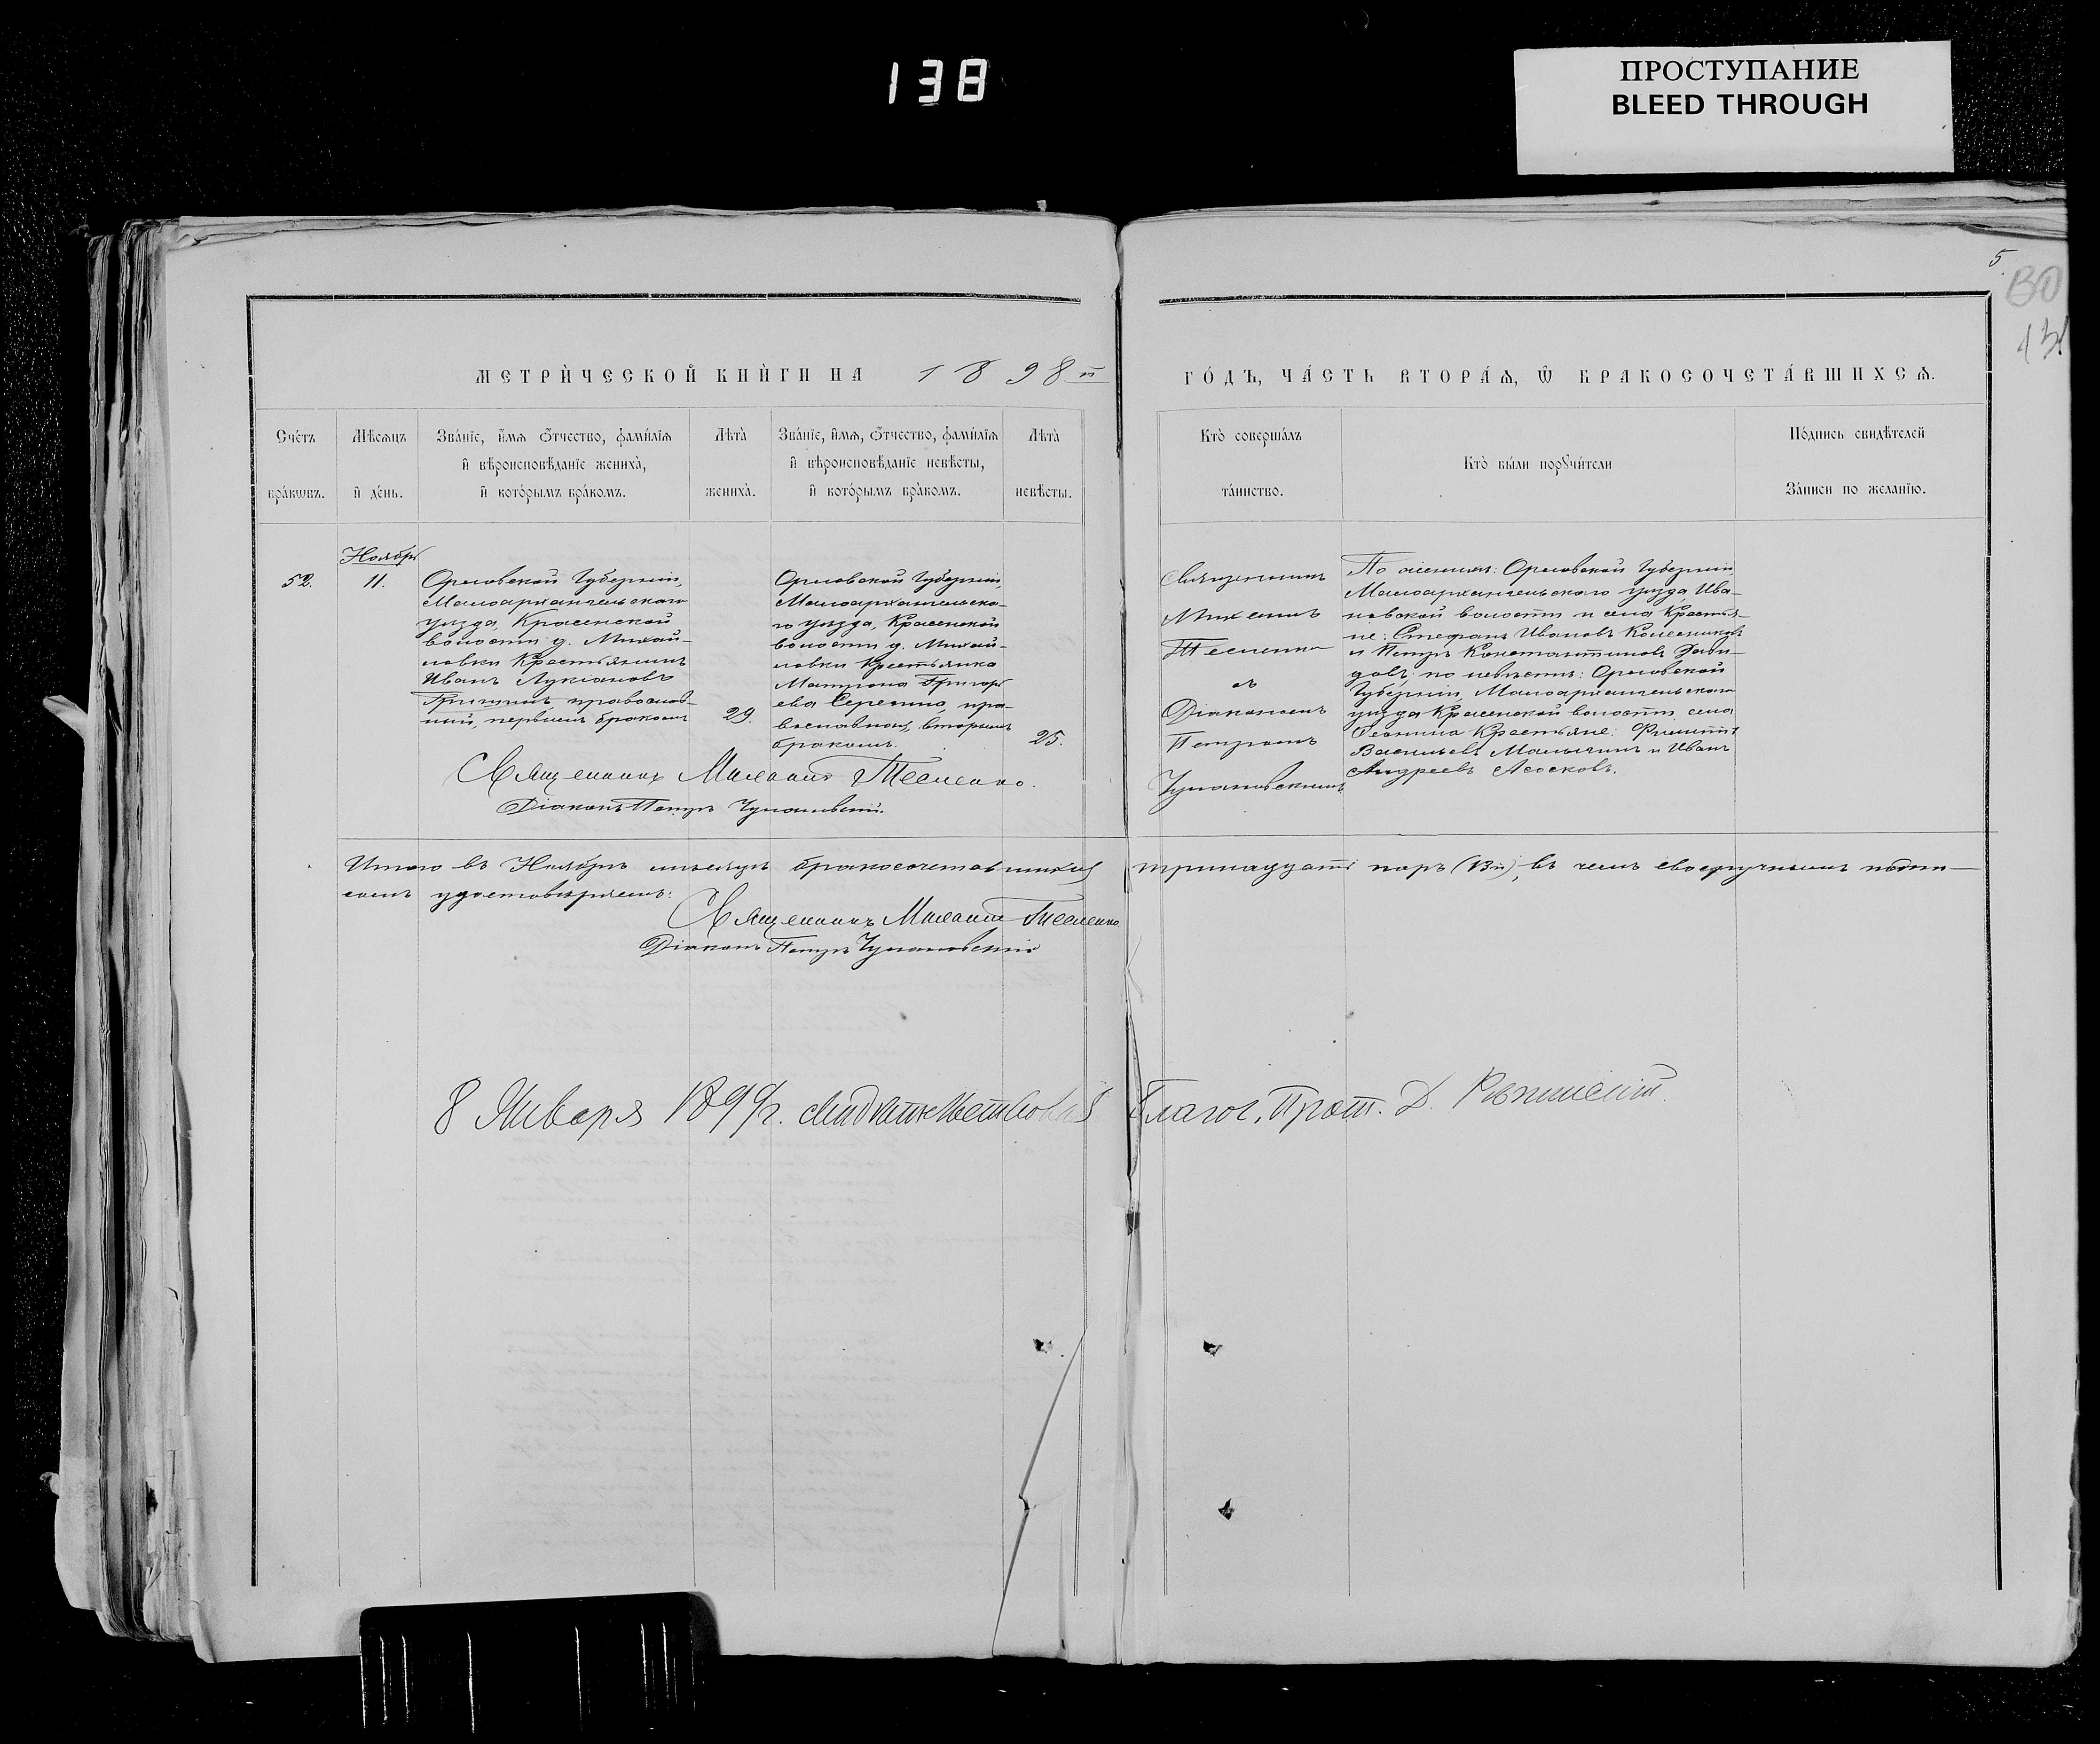 138
ПРОСТУПАНИЕ
BLEED THROUGH
5
МЕТРИ́ЧЕСКОЙ КНИ́ГИ НА 1898й
ГО́ДЪ, ЧА́СТЬ ВТОРА́Ѧ, Ѽ БРАКОСОЧЕТА́ВШИХСѦ.
Сче́тъ бра́кѡвъ.
Мѣсѧцъ и҆ де́нь.
Зва́нїе, и҆́мѧ ѻ҆́тчество, фамилїѧ и҆ вѣроисповѣданїе жениха̀, и҆ кото́рымъ бра́комъ.
Лѣта̀ жениха̀.
Зва́нїе, и҆́мѧ, ѻ҆́тчество, фамилїѧ и҆ вѣроисповѣданїе невѣсты, и҆ кото́рымъ бра́комъ.
Лѣта̀ невѣсты.
Кто̀ соверша́лъ та́инство.
Кто̀ бы́ли порꙋчи́тели
По́дпись свидѣтелей За́писи по желанїю.
52.
Ноябрь
11.
Орловской Губерніи,
Малоархангельскаго
уѣзда, Красенской
волости д. Михай-
ловки Крестьянинъ
Иванъ Лукіановъ
Гришинъ, православ-
ный, первымъ бракомъ
29.
Орловской Губерніи,
Малоархангельска-
го уѣзда, Красенской
волости д. Михай-
ловки Крестьянка
Матрона Григорь
ева Серегина, пра-
вославная, вторымъ
бракомъ.
25.
Священникъ
Михаилъ
Тесленко
съ
Діакономъ
Петромъ
Чулановскимъ
По женихѣ: Орловской Губерніи,
Малоархангельскаго уѣзда, Ива-
новской волости и села Крестья-
не: Стефанъ Ивановъ Колесниковъ
и Петръ Константиновъ Дави-
довъ; по невѣстѣ: Орловской
Губерніи, Малоархангельскаго
уѣзда Красенской волости, села
Крестьяне: Филиппъ
Васильевъ Малыгинъ и Иванъ
Андреевъ Асосковъ.
Священникъ Михаилъ Тесленко.
Діаконъ Петръ Чулановскій.
Итого въ Ноябрѣ мѣсяцѣ бракосочетавшихся тринадцать паръ (13п), въ чемъ своеручнымъ подпи-
сомъ удостовѣряемъ:
Священникъ Михаилъ Тесленко
Діаконъ Петръ Чулановскій
8 Января 1899г. свидѣтельствовалъ Благоч. Прот. Д.